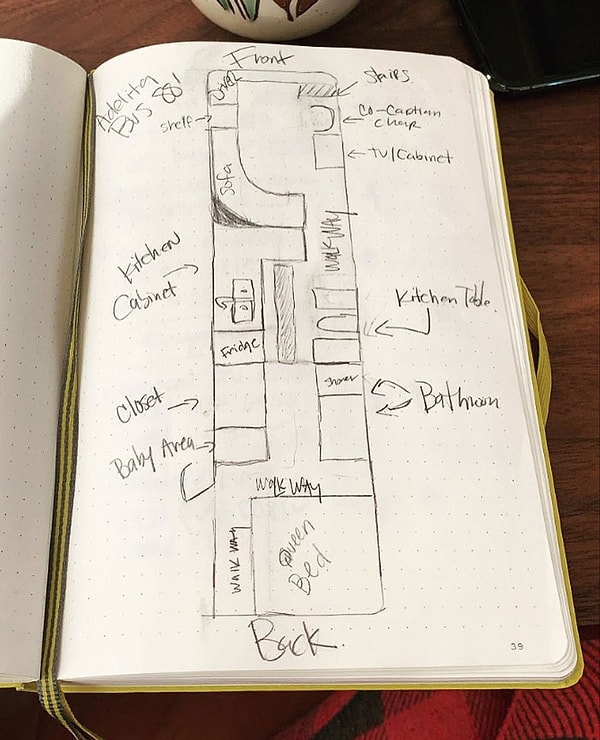 Front
Adelita
Bus 88'
Driver
Stairs
Shelf
Co-Caption
Chair
TV/Cabinet
Sofa
WALKWAY
Kitchen
Cabinet
Kitchen Table
Fridge
Shower
Closet
Bathroom
Baby Area
WalkWAY
WALKWAY
Queen
Bed
Back.
39